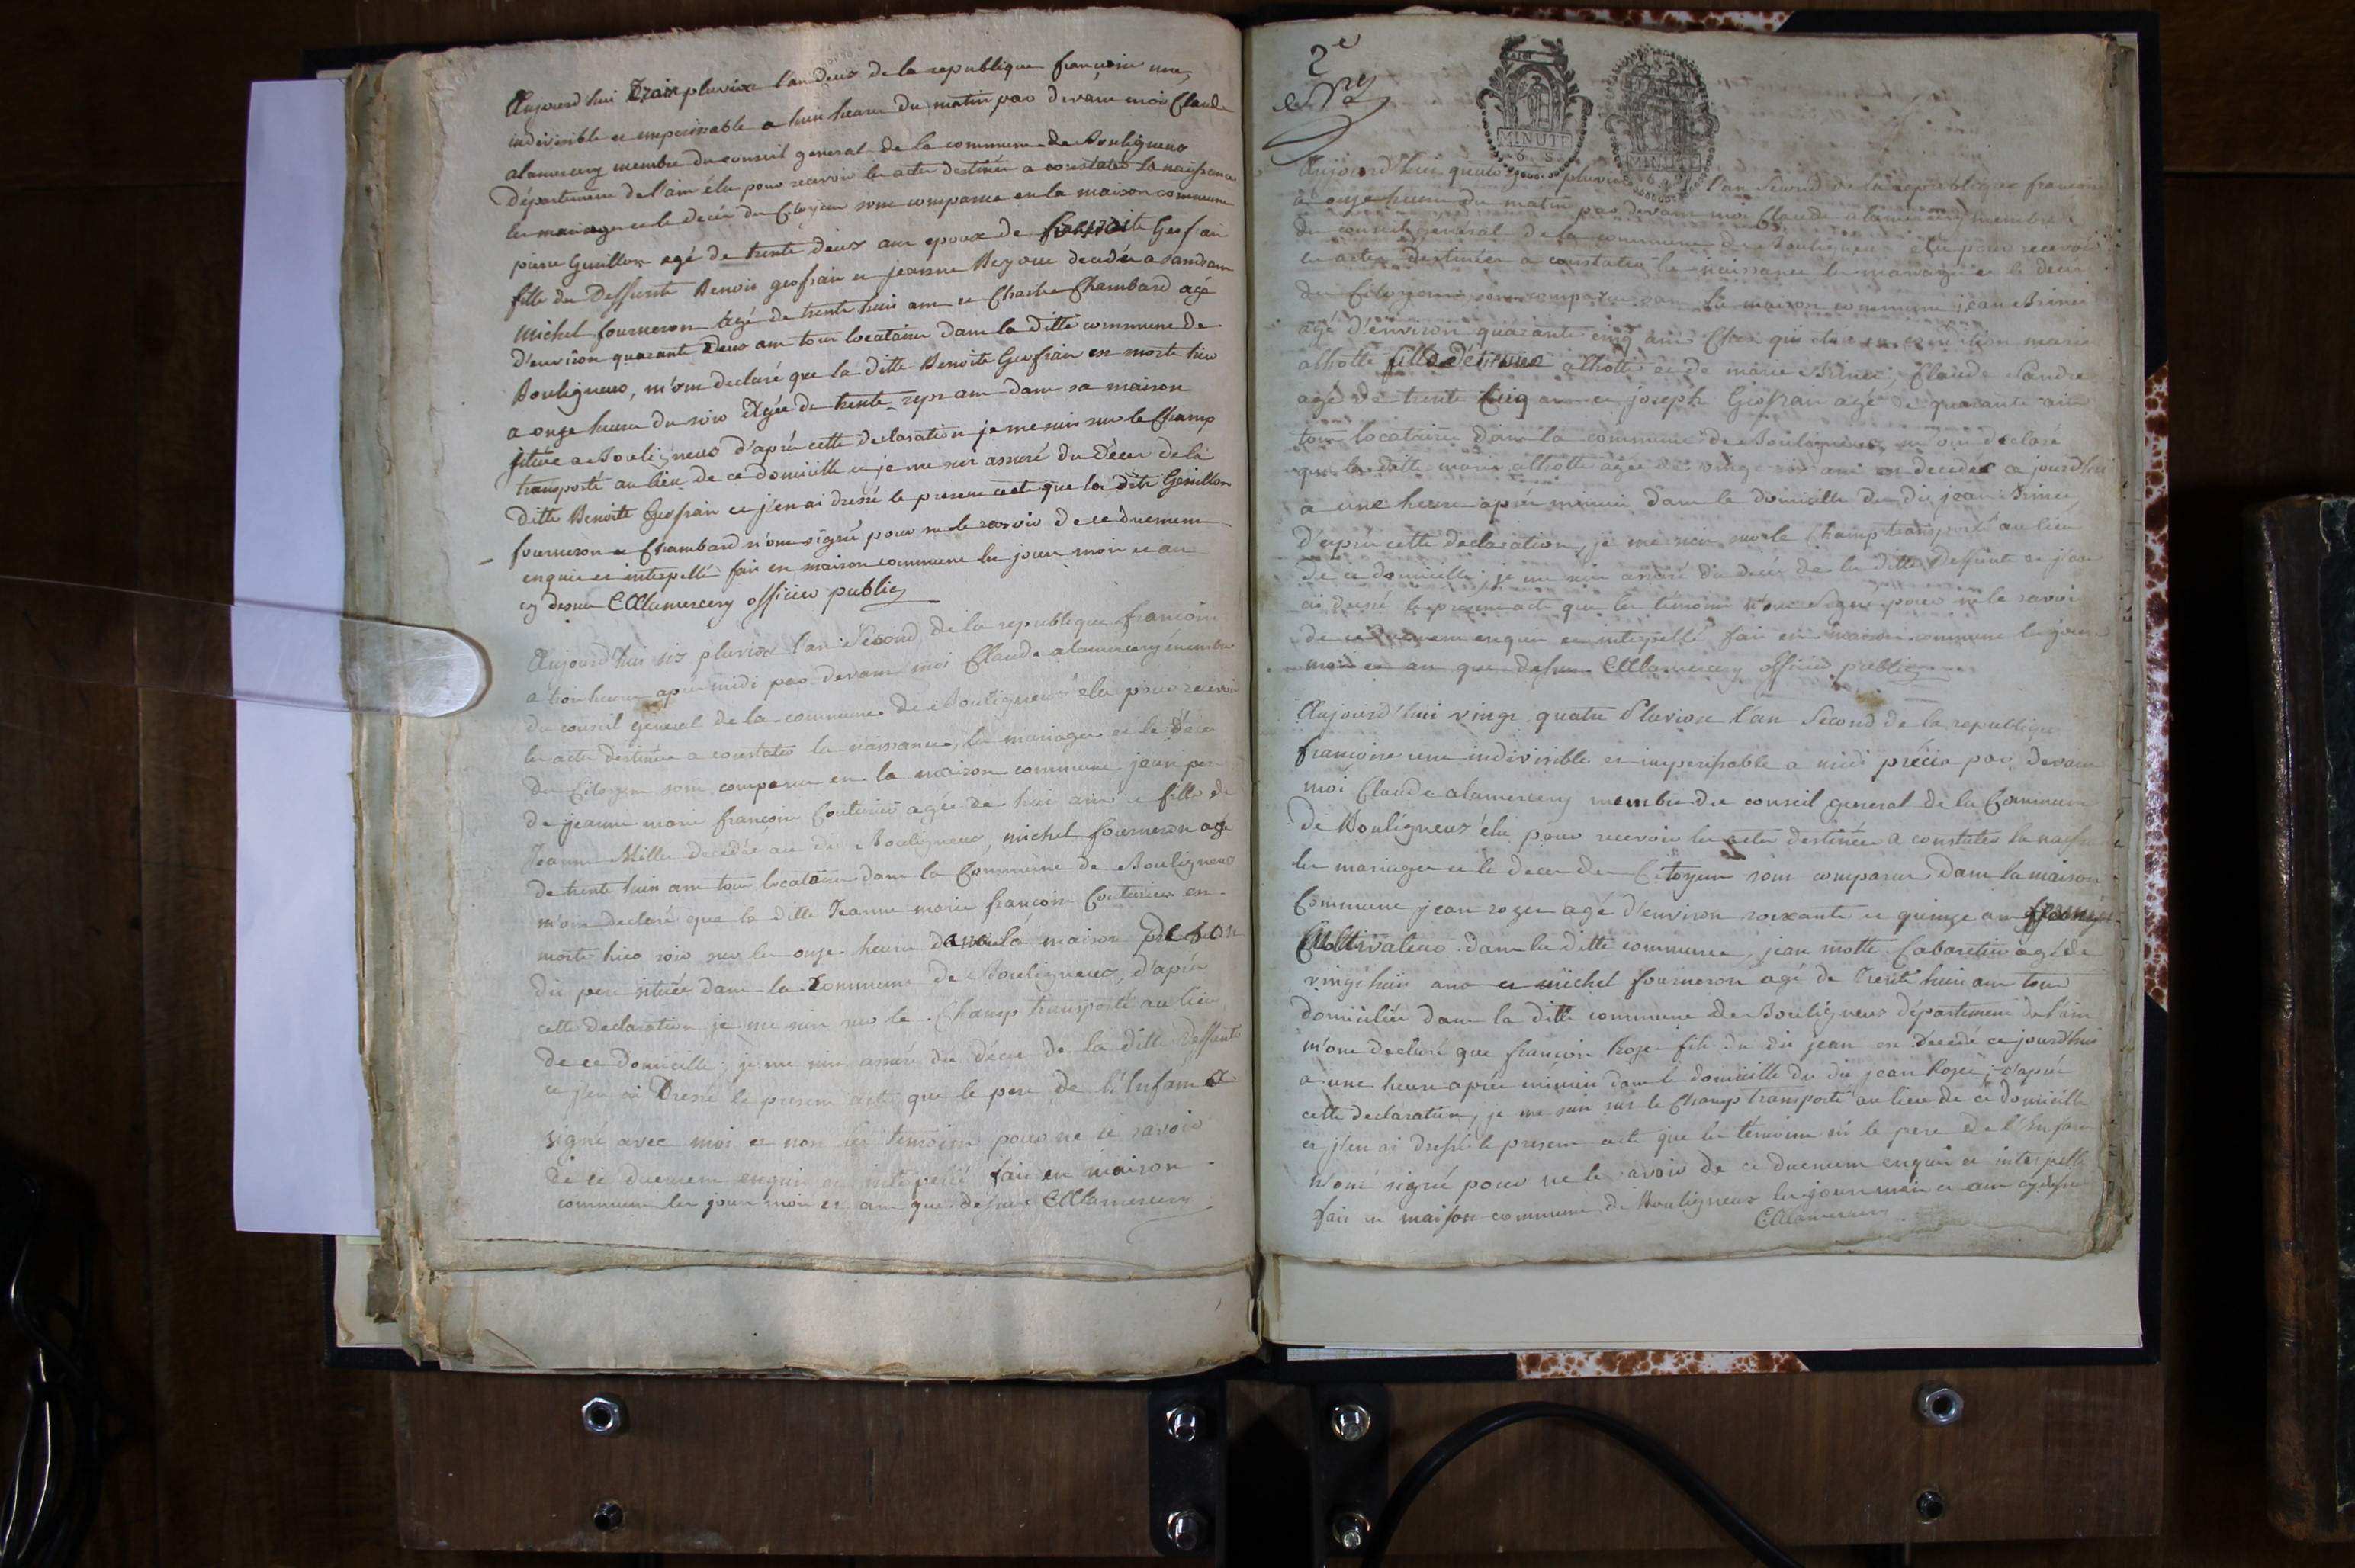 Aujourd'hui trois pluviose l'an deux de la republique francoise une
indivisible et imperissable a huit heure du matin par devant moi Claude
alamercery membre du conseil general de la commune de Bouligneux
Département de l'ain élu pour recevoir les actes destinés a constater la naissance
les mariages et le decés des Citoyens sont comparus en la maison commune
pierre Guillon agé de trente deux ans epoux de Benoite Geofrai
fille du deffunte Benoit geofrai et jeanne décédés a
michel fourneron agé de trente huit ans et Charle Chambard age
d'environ quarante deux ans tous locataires dans la ditte commune de
Bouligneux, m'ont declaré que la ditte Benoite Geofrai est morte hier
a onze heure du soir agée de trente sept ans dans sa maison
située a Bouligneux d'après cette declaration je me suis sur le Champ
transporté au lieu de ce domicille et je me suis assuré du Décés de la
ditte Benoite Geofrai et j'en ai dressé le present acte que le dit Guillon
fourneron et Chambard n'ont signé pour ne le savoir de ce duement
enquis et interpellé fait en maison commune les jours mois et an
cy dessus CAlamercery officier public
Aujourd'hui six pluviose l'an Second de la republique francoise
a trois heures après midi par devant moi Claude alamercery membre
du conseil general de la commune de Bouligneux élu pour recevoir
les actes destinés a constater la naissance, les mariages et le décés
des Citoyens sont comparus en la maison commune jean pere
de jeanne marie francoise Couturier agée de huit ans et fille de
Jeanne Millet decedée au dit Bouligneux, michel fourneron agé
de trente huit ans tous locataires dans la Commune de Bouligneux
m'ont declaré que la ditte Jeanne marie francoise Couturier est
morte hier soir sur les onze heure dans la maison de son
dit pere située dans la Commune de Bouligneux, d'après
cette declaration je me suis sur le Champ transporté au lieu
de ce domicille, je me suis assuré du décés de la ditte deffunte
et j'en ai Dressé le present acte que le pere de l'Enfant a
signé avec moi et non les temoins pour ne le savoir
de ce duement enquis et interpellé fait en maison
commune les jour mois et an que dessus CAlamercery
2e
MINUTE
6 S
MINUTE
Aujourd'hui quatorze pluviose l'an Second de la republique francoise
a onze heure du matin par devant moi Claude alamercery membre
du conseil general de la commune de Bouligneux élu pour recevoir
les actes destinés a constater la naissance les mariages et le decés
des Citoyens sont comparus dans la maison commune jean Brinet
agé d'environ quarante cinq ans Chez qui étoit en condition marie
alhotte fille d'étienne alhotte et de marie Brinet, Claude Sandre
agé de trente cinq ans et joseph Geofrai agé de quarante ans
tous locataires dans la commune de Bouligneux m'ont declaré
que la ditte marie alhotte agée de vingt six ans est decedée ce jourd'hui
a une heure après minuit dans le domicille du dit jean Brinet
d'après cette declaration, je me suis sur le Champ transporté au lieu
de ce domicille, je me suis assuré du decés de la ditte deffunte et j'en
ai dressé le present acte que les témoins n'ont Signé pour ne le savoir
de ce duement enquis et interpellé fait en maison commune les jours
mois et an que dessus CAlamercery officier public
Aujourd'hui vingt quatre Pluviose l'an Second de la republique
francoise une indivisible et imperissable a midi précis par devant
moi Claude alamercery membre du conseil general de la Commune
de Bouligneux élu pour recevoir les actes destinés a constater la naissance
les mariages et le deces des Citoyens sont comparus dans la maison
Commune jean rozet agé d'environ soixante et quinze ans
Cultivateur dans la ditte commune, jean motte Cabaretier agé de
vingt huit ans et michel fourneron agé de trente huit ans tous
domiciliés dans la ditte commune de Bouligneux département de l'ain
m'ont declaré que francois Rozet fils du dit jean est Décédé ce jourd'hui
a une heure après minuit dans le domicille du dit jean Rozet, d'après
cette declaration, je me suis sur le Champ transporté au lieu de ce domicille
et j'en ai dressé le present acte que les témoins ni le pere de l'Enfant
n'ont signé pour ne le savoir de ce duement enquis et interpellé
fait en maison commune de Bouligneux les jours mois et an cy dessus
CAlamercery